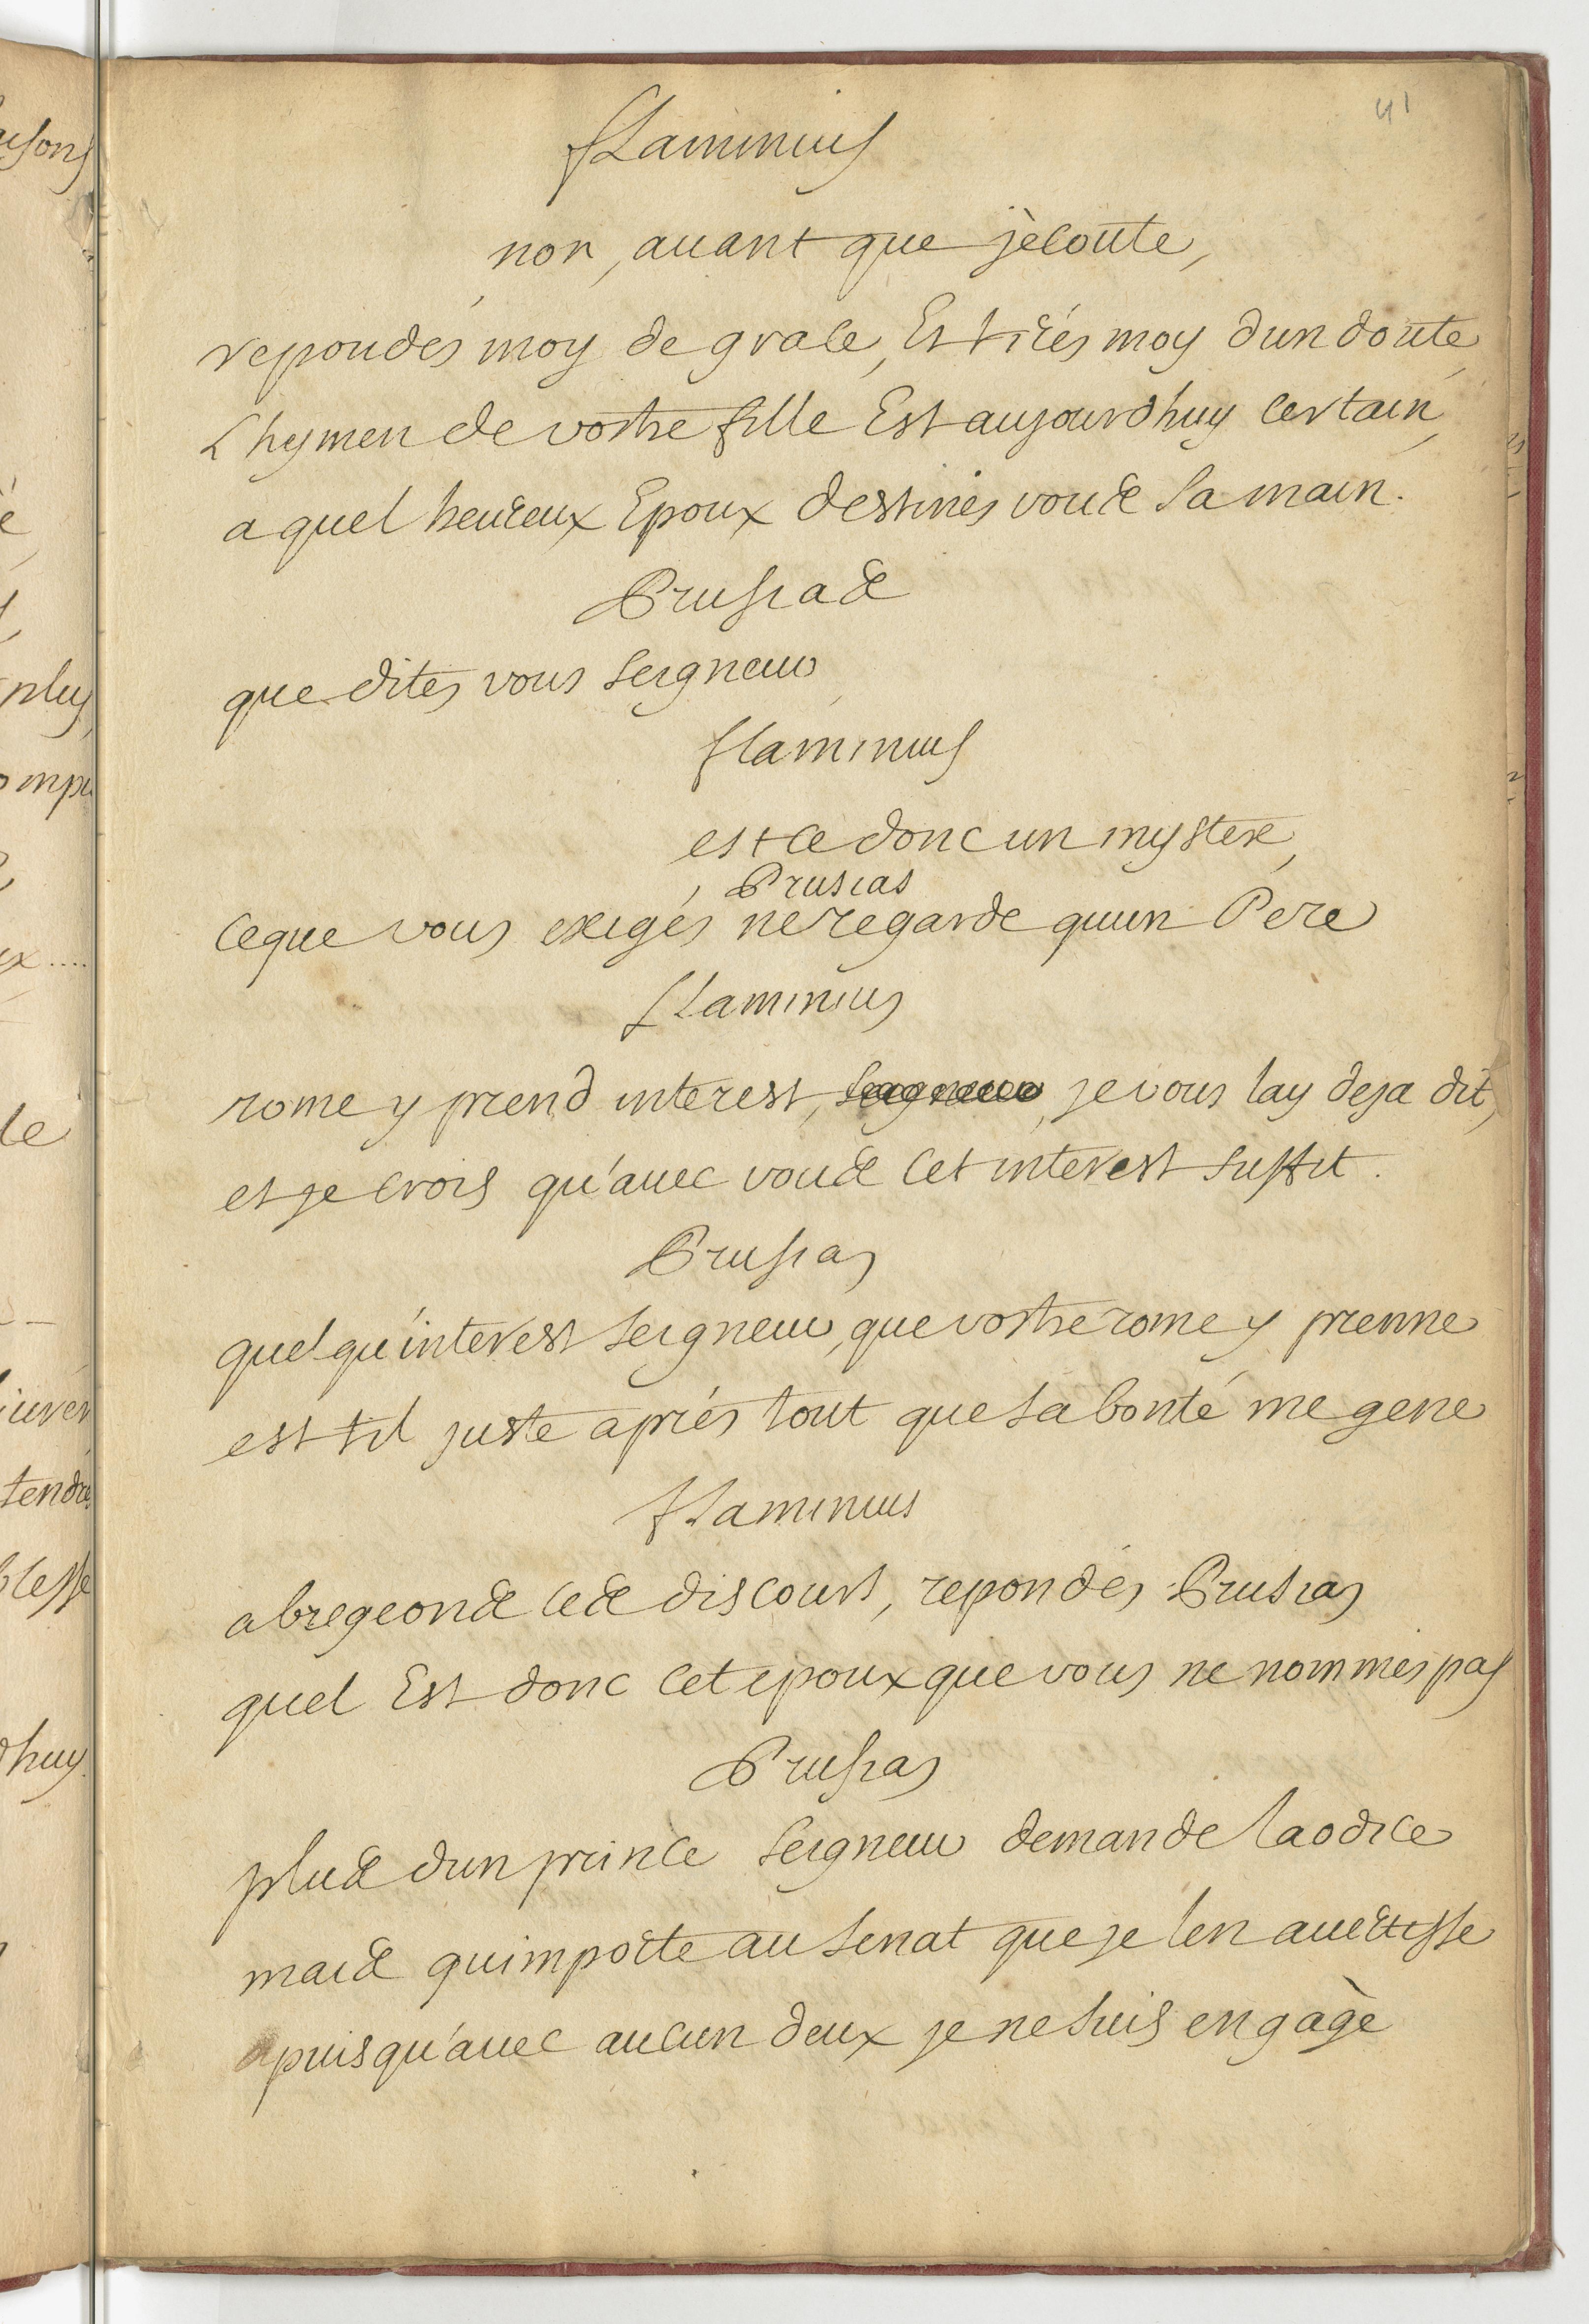 41
flaminius
non, auant que jècoute,
repondés moy de grace, Et tirés moy dun doute,
Lhymen de vostre fille Est aujourdhuy certain,
a quel heureux Epoux destinés vous sa main.
Prusias
que dites vous seigneur,
flaminius
est ce donc un mystere,
Prusias
ce que vous exigés ne regarde quun Pere
flaminius
rome y prend interest, seigneur, je vous lay deja dit,
et je crois qu'auec vous cet interest suffit.
Prusias
quelqu'interest seigneur, que vostre rome y prenne
est til juste aprés tout que sa bonté me gene
flaminius
abregeons ces discours, repondés Prusias
quel Est donc cet epoux que vous ne nommés pas
Prusias
plus dun prince seigneur demande laodice
mais quimporte au senat que je len auertisse
puisqu'auec aucun deux je ne suis engagè